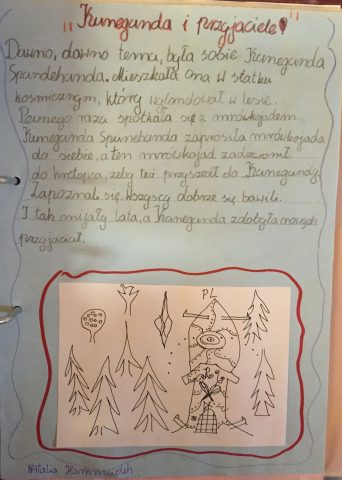 "Kunegunda i przyjaciele!"
Dawno, dawno temu, była sobie Kunegunda
Spundehunda. Mieszkała ona w statku
kosmicznym, który wylondował w lesie.
Pewnego razu spotkała się z mrówkojadem.
Kunegunda Spunehunda zaprosiła mrówkojada
do siebie, a ten mrówkojad zadzwonił
do kretowca, żeby też przyszedł do Kunegundy.
Zapoznali się. Wszyscy dobrze się bawili.
I tak mijały lata, a Kunegunda zdobyła nowych
przyjaciół.
PL
Natalia